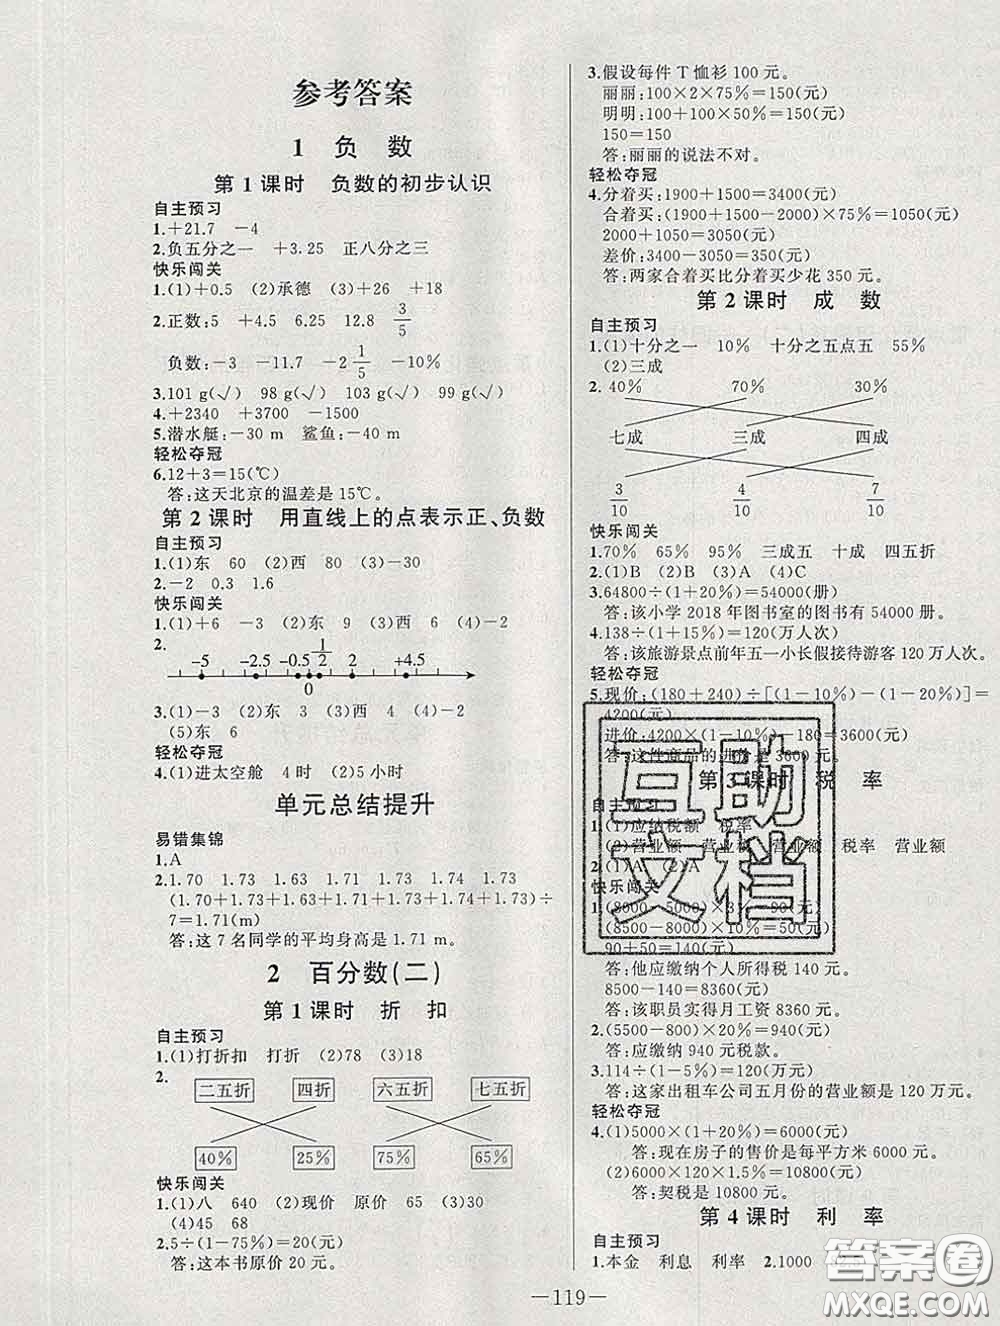 参考答案
1 负 数
第1课时 负数的初步认识
自主预习
1.+21.7 -4
2.负五分之一 +3.25 正八分之三
快乐闯关
1.(1)+0.5 (2)承德 (3)+26 +18
2.正数:5 +4.5 6.25 12.8 3/5
负数:-3 -11.7 -2 1/5 -10%
3.101 g(√) 98 g(√) 103 g(√) 99 g(√)
4.+2340 +3700 -1500
5.潜水艇:-30 m 鲨鱼:-40 m
轻松夺冠
6.12+3=15(℃)
答:这天北京的温差是15℃。
第2课时 用直线上的点表示正、负数
自主预习
1.(1)东 60 (2)西 80 (3)-30
2.-2 0.3 1.6
快乐闯关
1.(1)+6 -3 (2)东 9 (3)西 (4)-2
2.
-5 -2.5 -0.5 1/2 2 +4.5
0
3.(1)-3 (2)东 (3)西 4 (4)-2
(5)东 6
轻松夺冠
4.(1)进太空舱 4时 (2)5小时
单元总结提升
易错集锦
1.A
2.1.70 1.73 1.63 1.71 1.73 1.74 1.73
(1.70+1.73+1.63+1.71+1.73+1.74+1.73)÷
7=1.71(m)
答:这7名同学的平均身高是1.71 m。
2 百分数(二)
第1课时 折 扣
自主预习
1.(1)打折扣 打折 (2)78 (3)18
2.
二五折 四折 六五折 七五折
40% 25% 75% 65%
快乐闯关
1.(1)八 640 (2)现价 原价 65 (3)30
(4)45 68
2.5÷(1-75%)=20(元)
答:这本书原价20元。
3.假设每件T恤衫100元。
丽丽:100×2×75%=150(元)
明明:100+100×50%=150(元)
150=150
答:丽丽的说法不对。
轻松夺冠
4.分着买:1900+1500=3400(元)
合着买:(1900+1500-2000)×75%=1050(元)
2000+1050=3050(元)
差价:3400-3050=350(元)
答:两家合着买比分着买少花350元。
第2课时 成 数
自主预习
1.(1)十分之一 10% 十分之五点五 55%
(2)三成
2. 40% 70% 30%
七成 三成 四成
3/10 4/10 7/10
快乐闯关
1.70% 65% 95% 三成五 十成 四五折
2.(1)B (2)B (3)A (4)C
3.64800÷(1+20%)=54000(册)
答:该小学2018年图书室的图书有54000册。
4.138÷(1+15%)=120(万人次)
答:该旅游景点前年五一小长假接待游客120万人次。
轻松夺冠
5.现价:(180+240)÷[(1-10%)-(1-20%)]=
4200(元)
进价:4200×(1-10%)-180=3600(元)
答:这件商品的进价是3600元。
第3课时 税 率
自主预习
1.(1)应纳税额 税率
(2)营业额 税率 营业额 税率 营业额
2.(1)A (2)A
快乐闯关
1.(8000-5000)×3%=90(元)
(8500-8000)×10%=50(元)
90+50=140(元)
答:他应缴纳个人所得税140元。
8500-140=8360(元)
答:该职员实得月工资8360元。
2.(5500-800)×20%=940(元)
答:应缴纳940元税款。
3.114÷(1-5%)=120(万)
答:这家出租车公司五月份的营业额是120万元。
轻松夺冠
4.(1)5000×(1+20%)=6000(元)
答:现在房子的售价是每平方米6000元。
(2)6000×120×1.5%=10800(元)
答:契税是10800元。
第4课时 利 率
自主预习
1.本金 利息 利率 2.1000
—119—
互助文档
答案圈
MXQE.COM